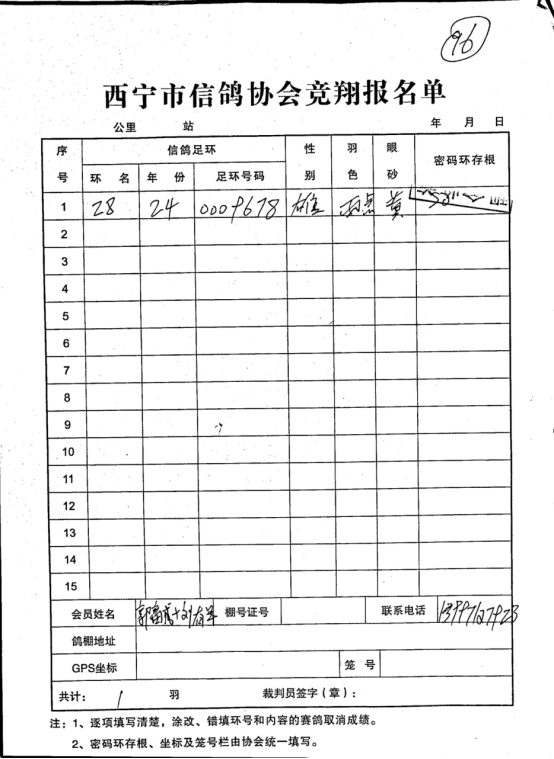 96
西宁市信鸽协会竞翔报名单
公里 站 年 月 日
序号 信鸽足环 性别 羽色 眼砂 密码环存根
环名 年份 足环号码
1 28 24 0009678 雄 雨点 黄
2
3
4
5
6
7
8
9
10
11
12
13
14
15
会员姓名 棚号证号 联系电话
鸽棚地址
GPS坐标 笼号
共计： 1 羽 裁判员签字（章）：
注：1、逐项填写清楚，涂改、错填环号和内容的赛鸽取消成绩。
2、密码环存根、坐标及笼号栏由协会统一填写。